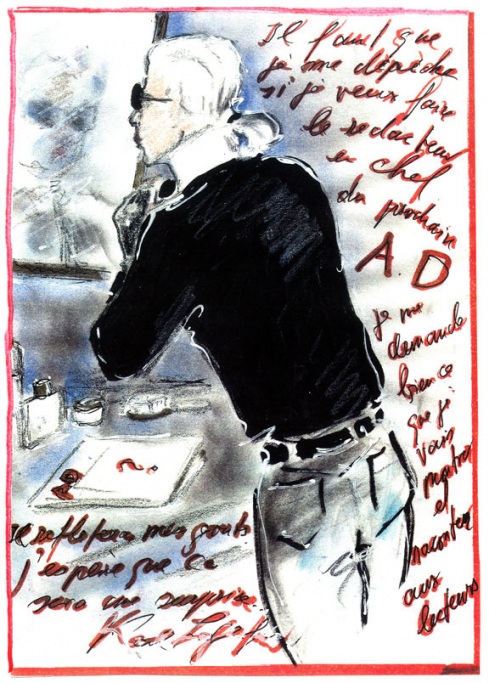 Il faut que
je me dépêche
si je veux faire
le rédacteur
en chef
du prochain
A.D
je me
demande
bien ce
que je
vais
montrer
et
raconter
aux
lecteurs
Il reflètera mes goûts
j'espère que ça
sera une surprise.
Karl Lagerfeld